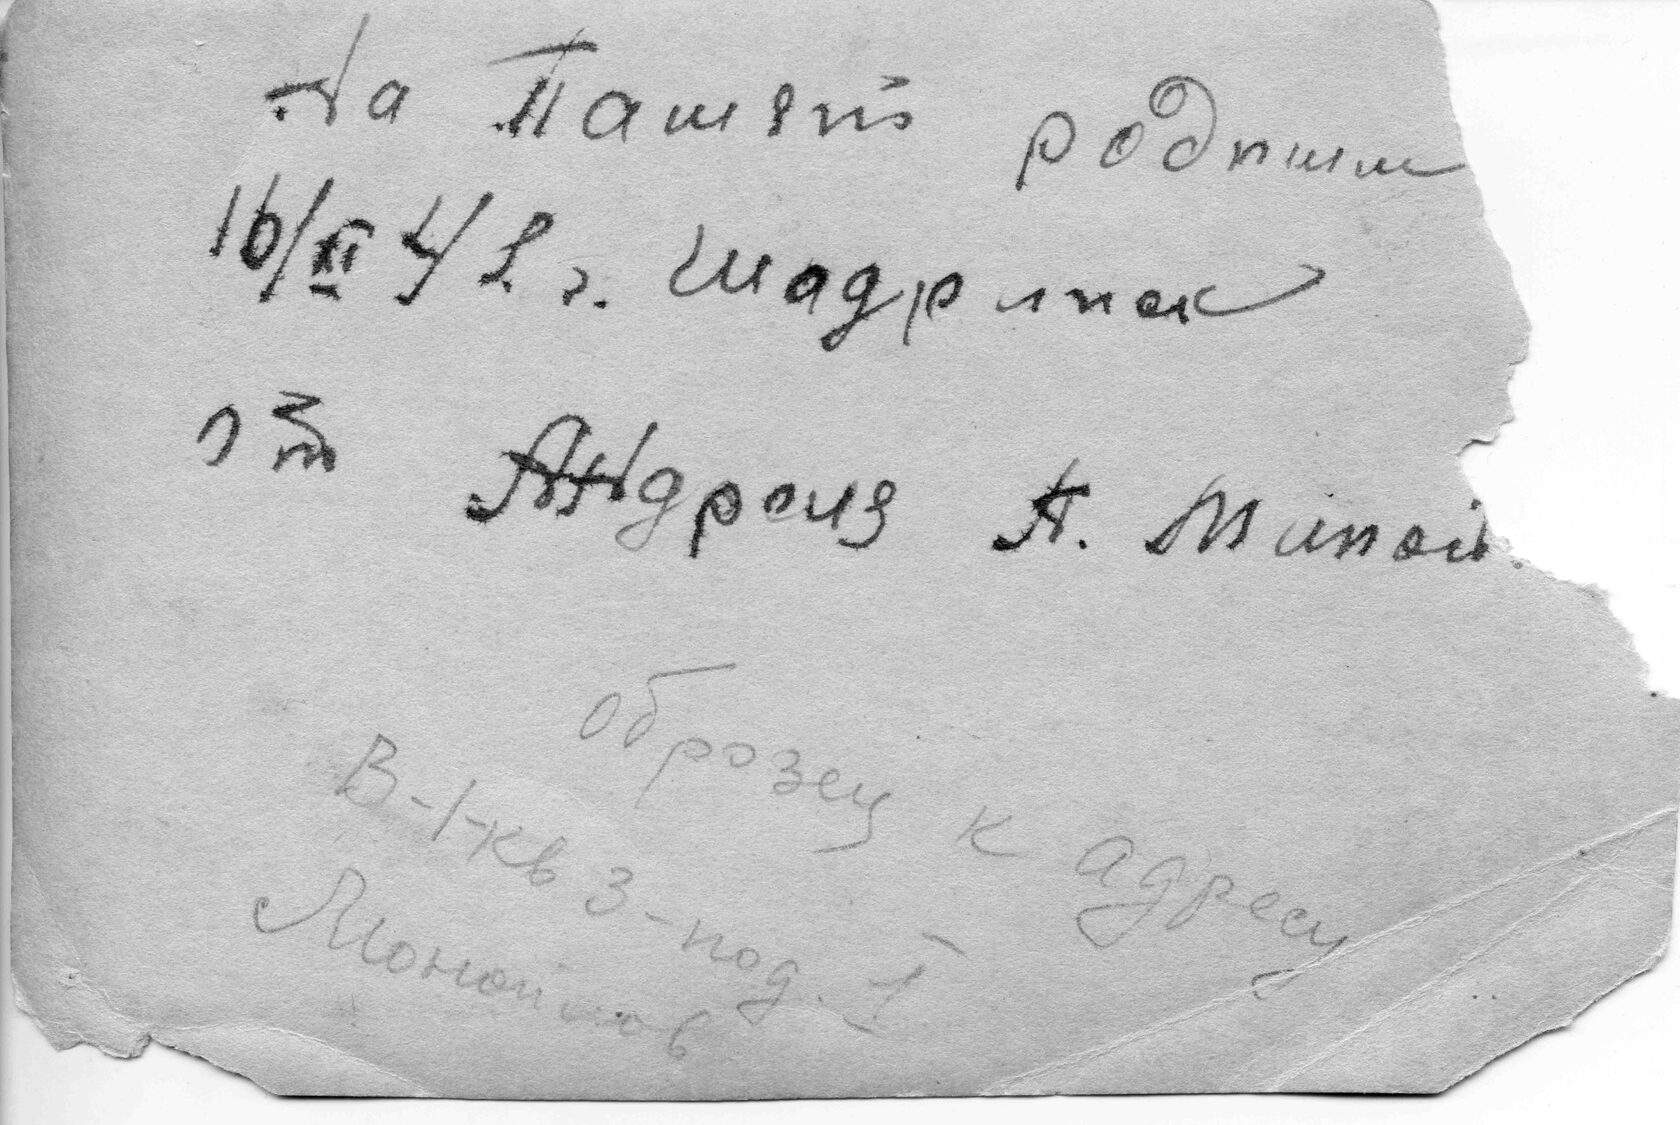 На Память родным
16/XII 41 г. Шадринск
от Андрея А. Миной
образец к адресу
В-1-кв 3-под. I
Монойлов